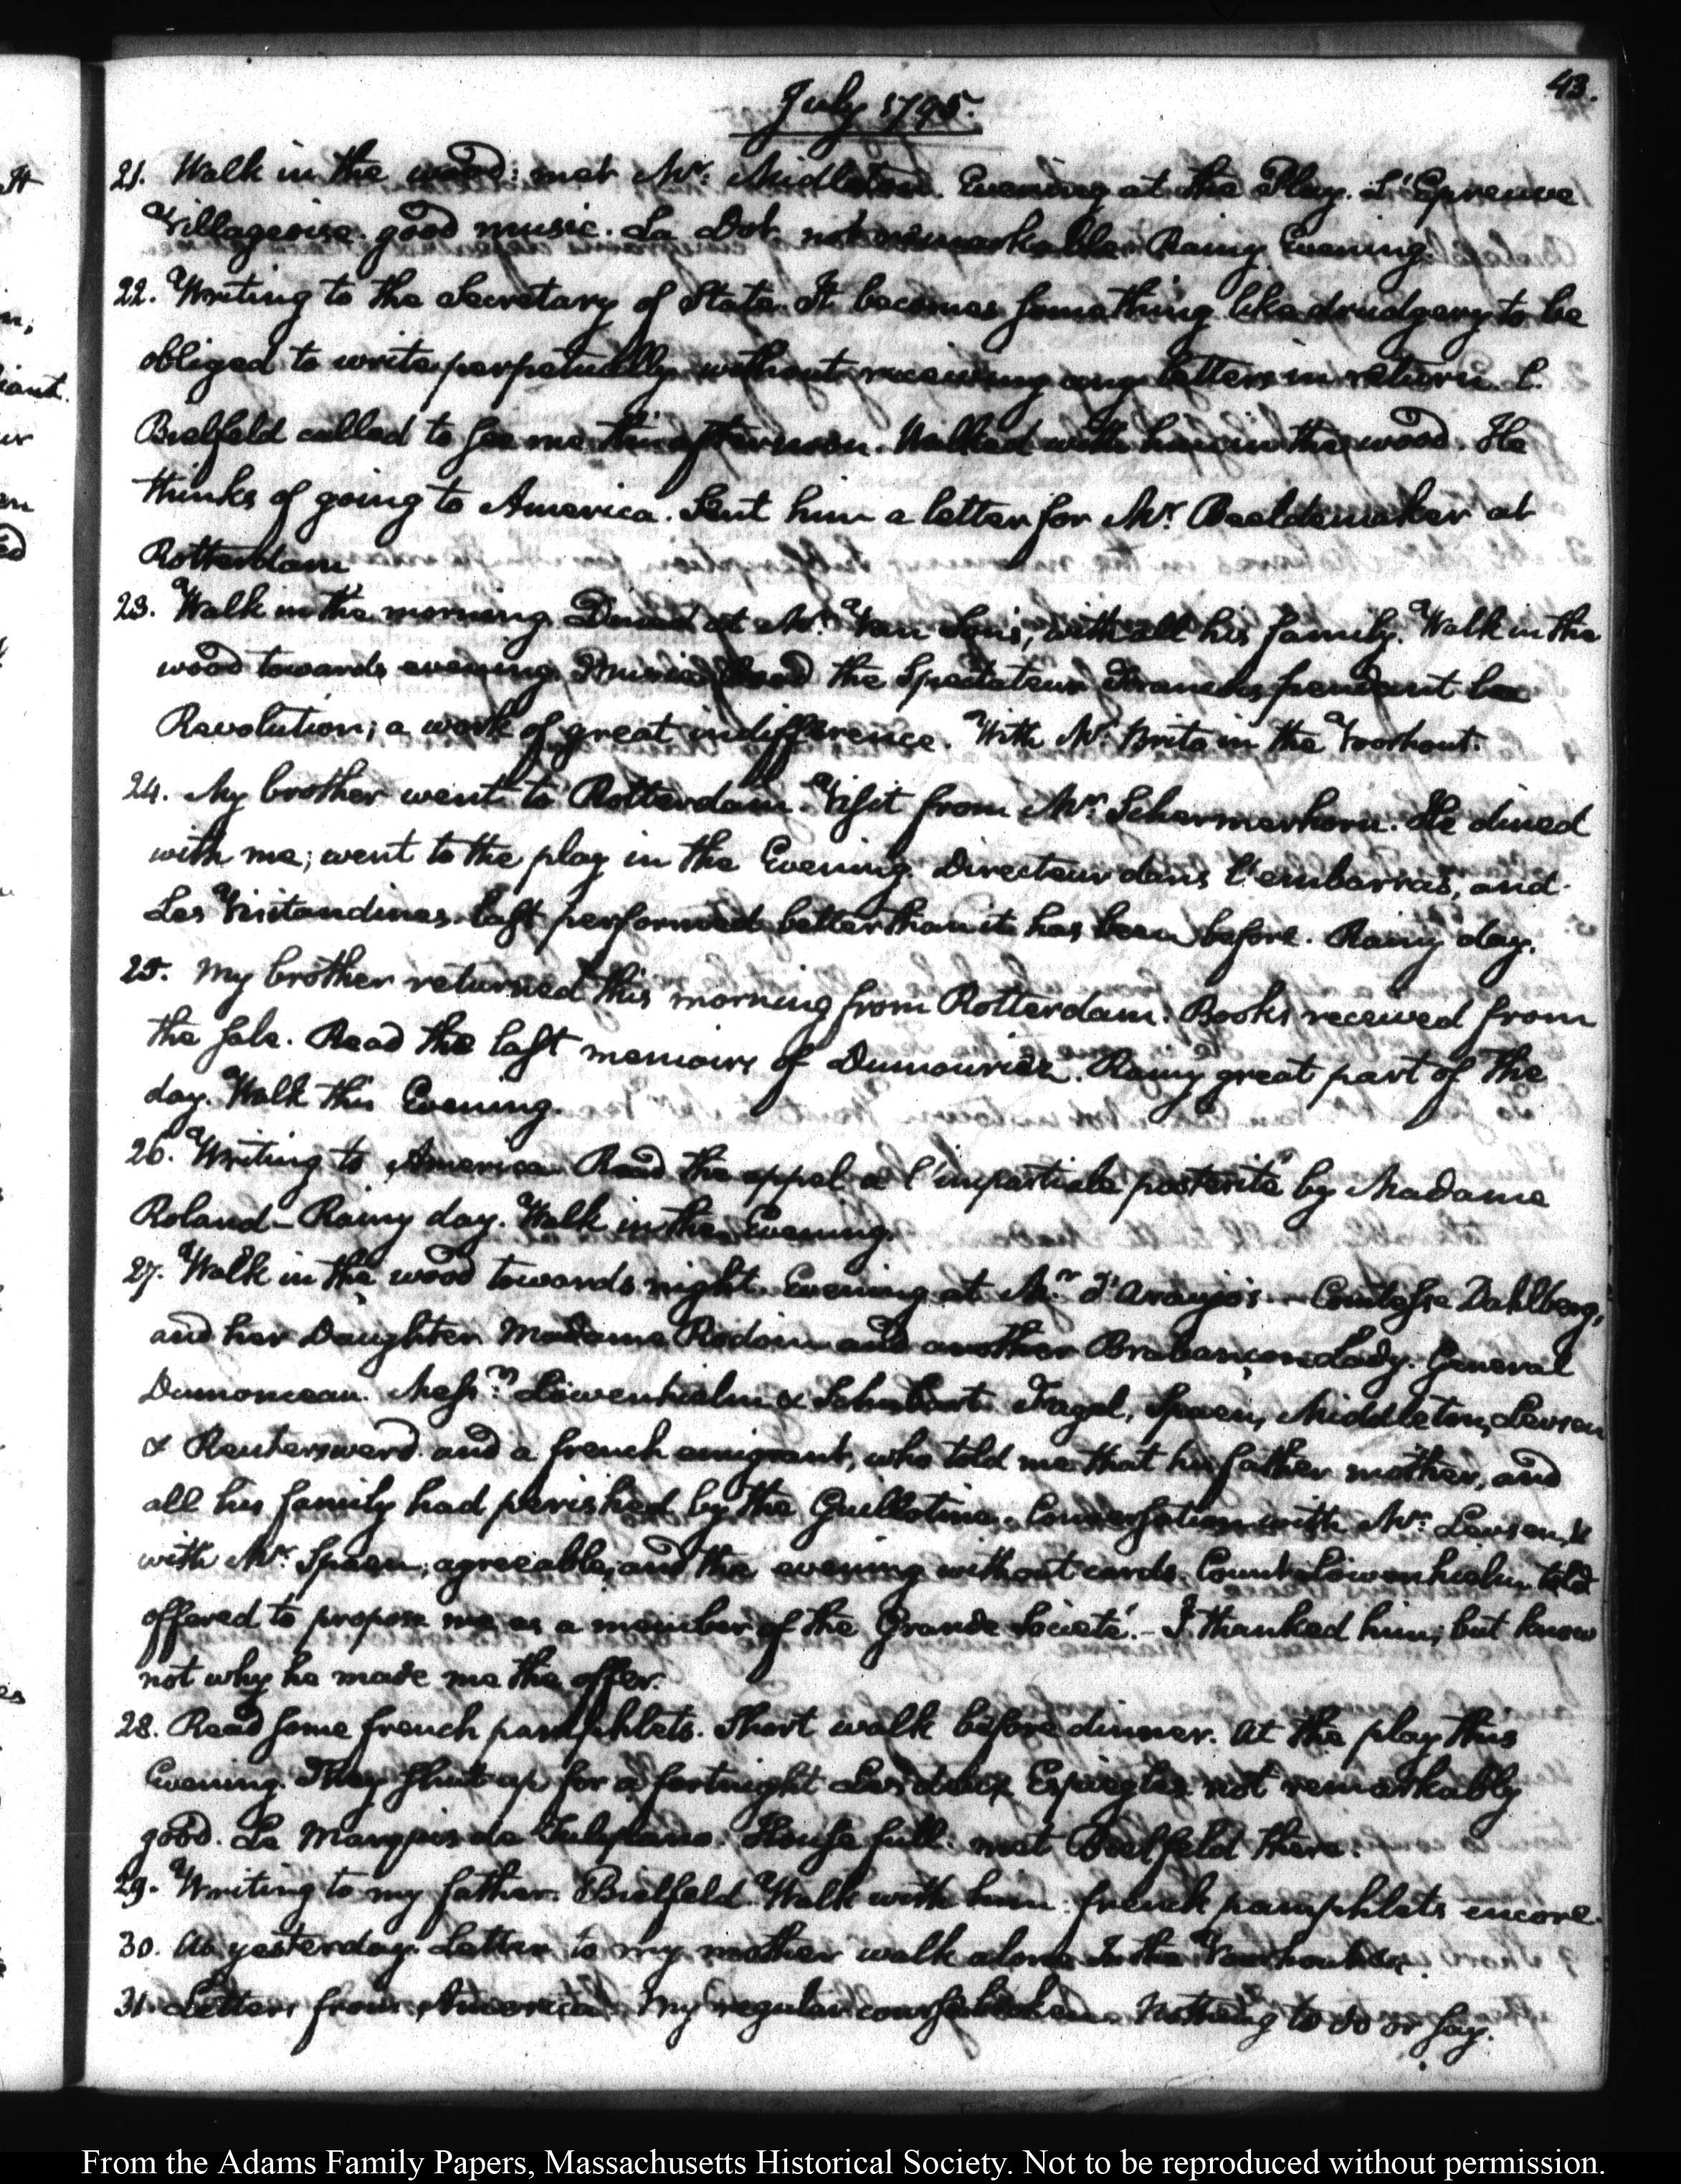 43.
July 1795.
21. Walk in the wood: met Mr. Midleton. Evening at the Play. L'Epreuve
Villageoise. good music. La Dot. not remarkable. Rainy Evening.
22. Writing to the Secretary of State. It becomes something like drudgery to be
obliged to write perpetually without receiving any letters in return. C.
Bielfeld called to see me this afternoon. Walked with him in the wood. He
thinks of going to America. Sent him a letter for Mr. Beeldemaker at
Rotterdam
23. Walk in the morning. Dined at Mr. Van Son's, with all his family. Walk in the
wood towards evening. Read the Spectateur Francais pendant la
Revolution; a work of great indifference. With Mr. Brito in the Voorhout.
24. My brother went to Rotterdam. Visit from Mr. Schermerhorn. He dined
with me; went to the play in the Evening. Directeur dans l'embarras, and
Les Visitandines. last performed better than it has been before. Rainy day.
25. My brother returned this morning from Rotterdam. Books received from
the sale. Read the last memoirs of Dumouriez. Rainy great part of the
day. Walk this Evening.
26. Writing to America. Read the appel a l'impartiale posterité by Madame
Roland—Rainy day. Walk in the Evening.
27. Walk in the wood towards night. Evening at Mr. d'Araujo's.— Comtesse Dahlberg,
and her Daughter. Madame and another Brabançon Lady. General
Dumonceau. Messrs. Löwenhielm & Schubart. Fagel, Spaen, Middleton, Levsen
& Reutersward. and a french emigrant, who told me that his father mother, and
all his family had perished by the Guillotine. Conversation with Mr. Levsen, &
with Mr. Spaen, agreeable, and the evening without cards. Count Löwenhielm told
offered to propose me as a member of the Grande Societé.— I thanked him; but know
not why he made me the offer.
28. Read some french pamphlets. Short walk before dinner. At the play this
Evening. They shut up for a fortnight. Les deux Espiegles not remarkably
good. Le Marquis de Tulipano. House full. met Bielfeld there.
29. Writing to my father. Bielfeld. Walk with him. french pamphlets encore.
30. As yesterday. Letter to my mother walk alone In the
31. Letters from America. My regular course broken. Nothing to do or say.
From the Adams Family Papers, Massachusetts Historical Society. Not to be reproduced without permission.